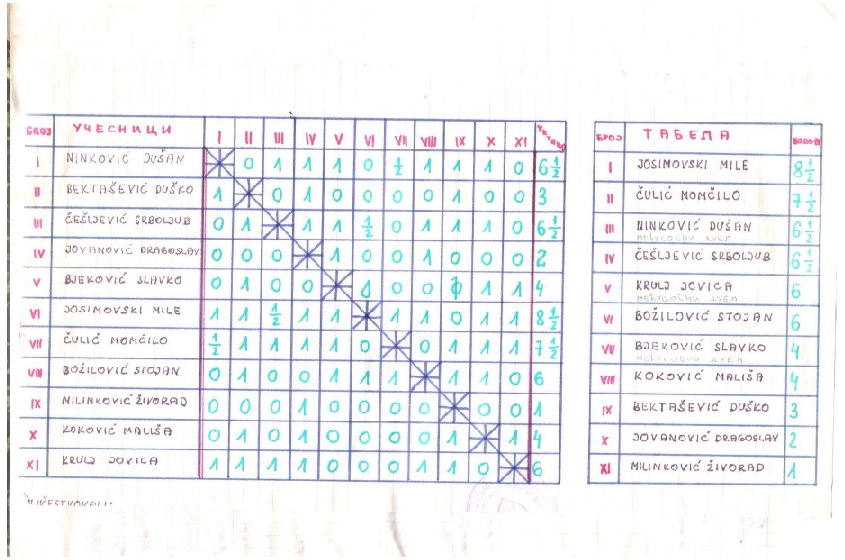 БROJ УЧЕСНИЦИ I II III IV V VI VII VIII IX X XI
I NINKOVIĆ DUŠAN 0 1 1 1 0 ½ 1 1 1 0 6 ½
II BEKTAŠEVIĆ DUŠKO 1 0 1 0 0 0 0 1 0 0 3
III ČEŠLJEVIĆ SRBOLJUB 0 1 1 1 ½ 0 1 1 1 0 6 ½
IV JOVANOVIĆ DRAGOSLAV 0 0 0 1 0 0 1 0 0 0 2
V BJEKOVIĆ SLAVKO 0 1 0 0 0 0 1 1 4
VI JOSIMOVSKI MILE 1 1 ½ 1 1 1 1 0 1 1 8 ½
VII ČULIĆ MOMČILO ½ 1 1 1 1 0 0 1 1 1 7 ½
VIII BOŽILOVIĆ STOJAN 0 1 0 0 1 1 1 1 1 0 6
IX MILINKOVIĆ ŽIVORAD 0 0 0 1 0 0 0 0 0 0 1
X KOKOVIĆ MALIŠA 0 1 0 1 0 0 0 0 1 1 4
XI KRULJ JOVICA 1 1 1 1 0 0 0 1 1 0 6
БРОЈ ТАБЕЛА
I JOSIMOVSKI MILE 8 ½
II ČULIĆ MOMČILO 7 ½
III NINKOVIĆ DUŠAN 6 ½
IV ČEŠLJEVIĆ SRBOLJUB 6 ½
V KRULJ JOVICA 6
VI BOŽILOVIĆ STOJAN 6
VII BJEKOVIĆ SLAVKO 4
VIII KOKOVIĆ MALIŠA 4
IX BEKTAŠEVIĆ DUŠKO 3
X JOVANOVIĆ DRAGOSLAV 2
XI MILINKOVIĆ ŽIVORAD 1